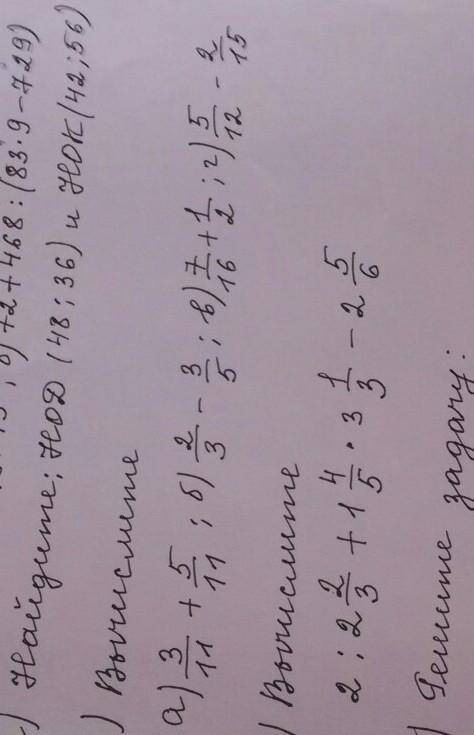 б) 72+468:(83·9-729)
) Найдите; НОД (48;36) и НОК (42;56)
) Вычислите
а) 3/11 + 5/11; б) 2/3 - 3/5; в) 7/16 + 1/2; г) 5/12 - 2/15
) Вычислите
2 : 2 2/3 + 1 4/5 · 3 1/3 - 2 5/6
) Решите задачу: